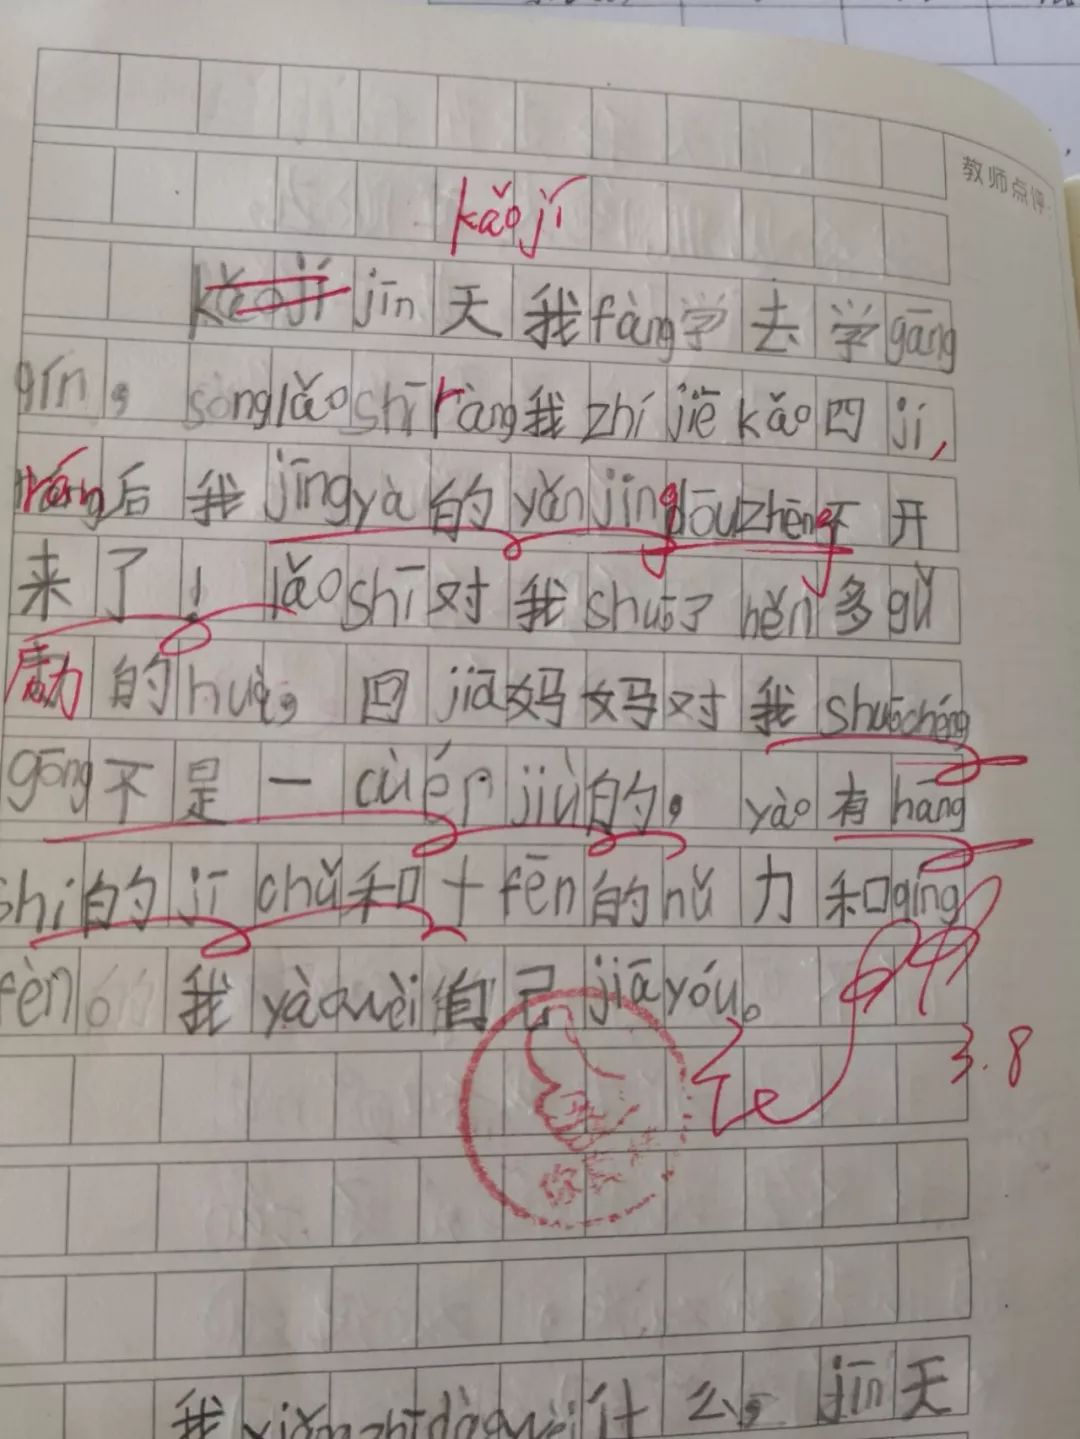 教师点评:
kǎojí
kǎojí jīn天我fàng学去学gāng
qín，sònglǎoshī ràng我zhí jiē kǎo四jí，
ráng后我jīngyà的yǎnjingdōuzhēng不开
来了！lǎoshī对我shuō了hěn多gǔ
励的huà。回jiā妈妈对我shuōchéng
gōng不是一cùér jiù的。yào有hāng
shí的jī chǔ和十fēn的nǔ力和qíng
fèn 我yàowèi自己jiāyóu。
3.8
我xiǎngzhīdàowèi什么，jīn天